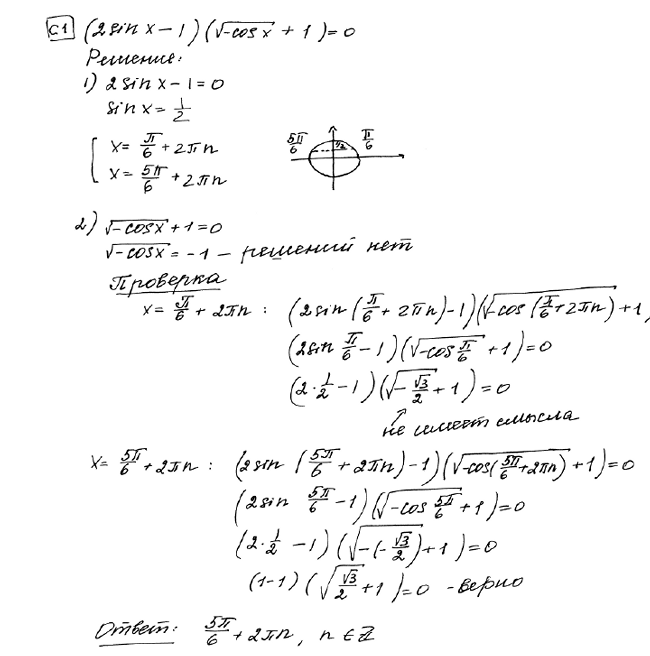 C1 (2 sin x − 1)(√(−cos x) + 1) = 0
Решение:
1) 2 sin x − 1 = 0
sin x = 1/2
[ x = π/6 + 2πn
x = 5π/6 + 2πn
5π/6 1/2 π/6
2) √(−cos x) + 1 = 0
√(−cos x) = −1 – решений нет
Проверка
x = π/6 + 2πn : (2 sin (π/6 + 2πn) − 1)(√(−cos (π/6 + 2πn)) + 1,
(2 sin π/6 − 1)(√(−cos π/6) + 1) = 0
(2 · 1/2 − 1)(√(−√3/2) + 1) = 0
не имеет смысла
x = 5π/6 + 2πn : (2 sin (5π/6 + 2πn) − 1)(√(−cos(5π/6 + 2πn)) + 1) = 0
(2 sin 5π/6 − 1)(√(−cos 5π/6) + 1) = 0
(2 · 1/2 − 1)(√(−(−√3/2)) + 1) = 0
(1 − 1)(√(√3/2) + 1) = 0 – верно
Ответ: 5π/6 + 2πn, n ∈ Z